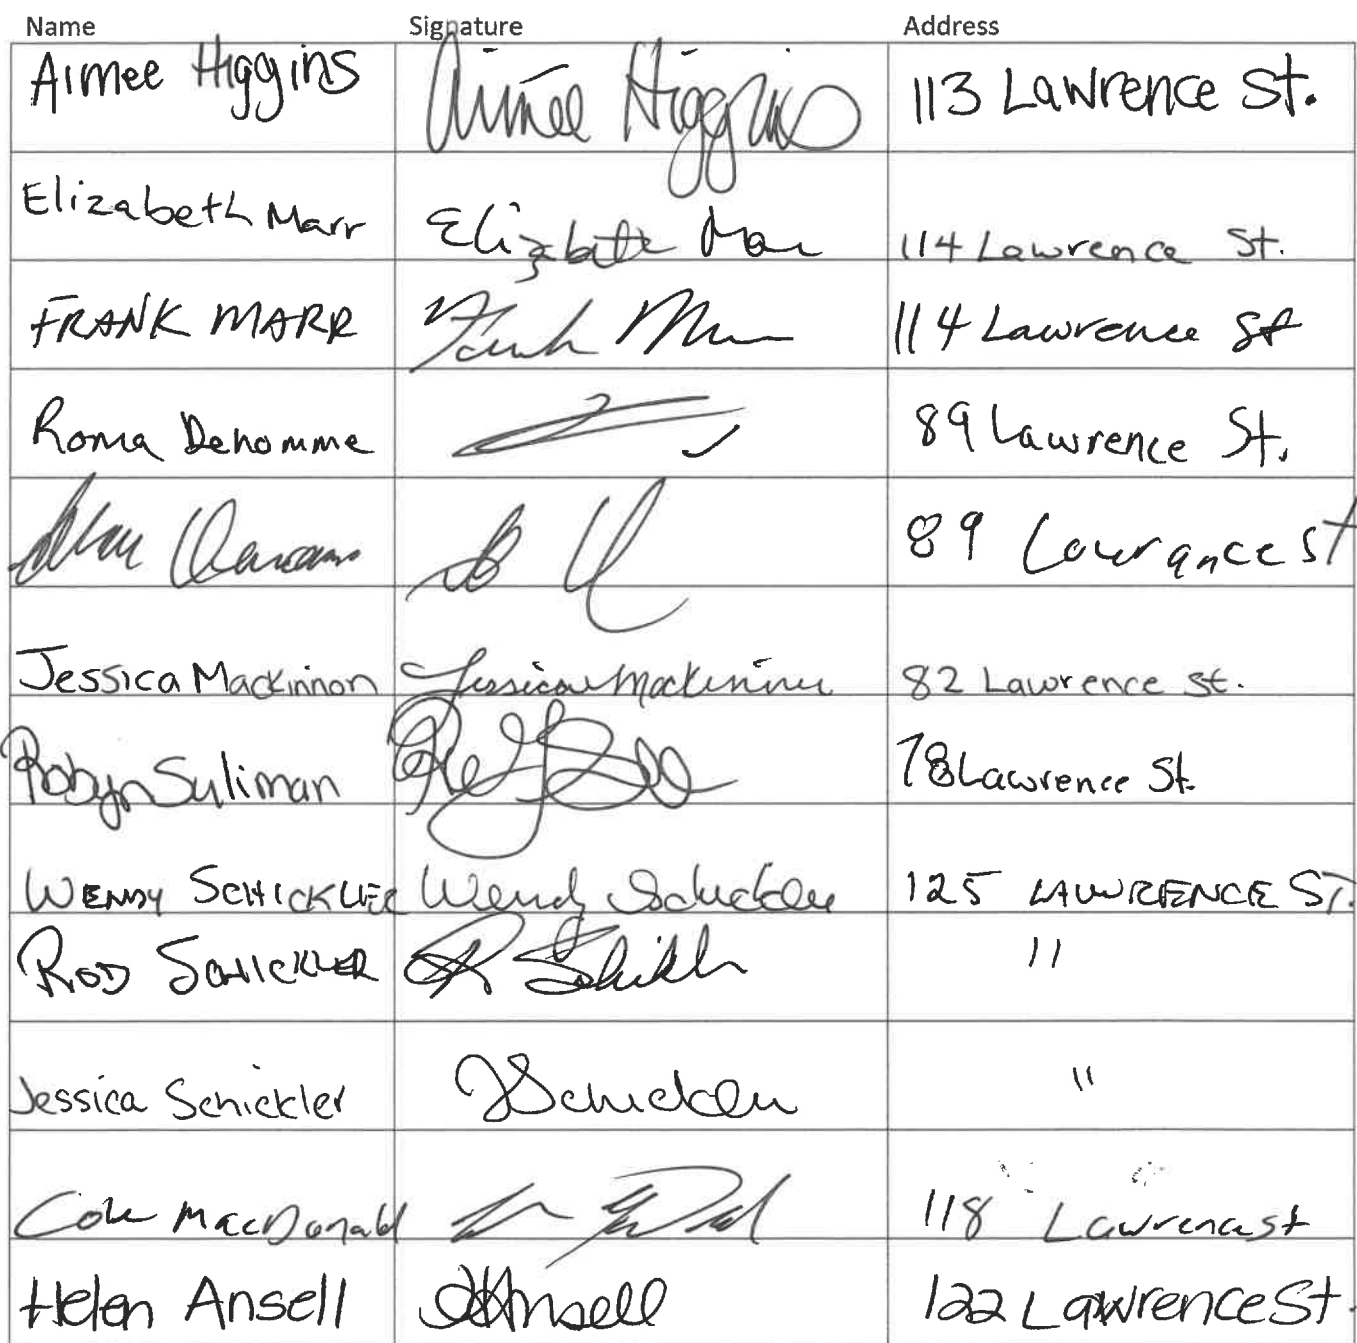 Name Signature Address
Aimee Higgins Aimée Higgins 113 Lawrence St.
Elizabeth Marr Elizabeth Marr 114 Lawrence St.
FRANK MARR Frank 114 Lawrence St
Roma Dehomme 89 Lawrence St.
89 Lawrance St
Jessica Mackinnon Jessica Mackinnon 82 Lawrence St.
Robyn Suliman 78 Lawrence St.
WENDY SCHICKLER Wendy Schickler 125 LAWRENCE ST.
ROD SCHICKLER R Schickler "
Jessica Schickler J Schickler "
Cole MacDonald 118 Lawrence st
Helen Ansell H Ansell 122 Lawrence St.